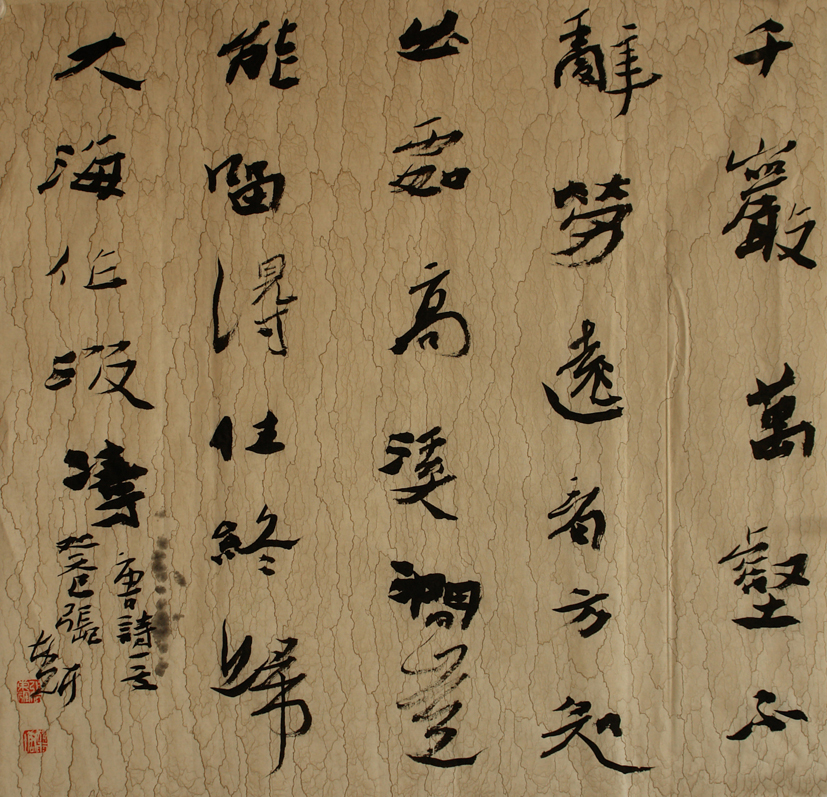 千巖萬壑不
辭勞遠看方知
出處高溪澗豈
能留得住終歸
大海作波濤
唐詩一首
癸巳張